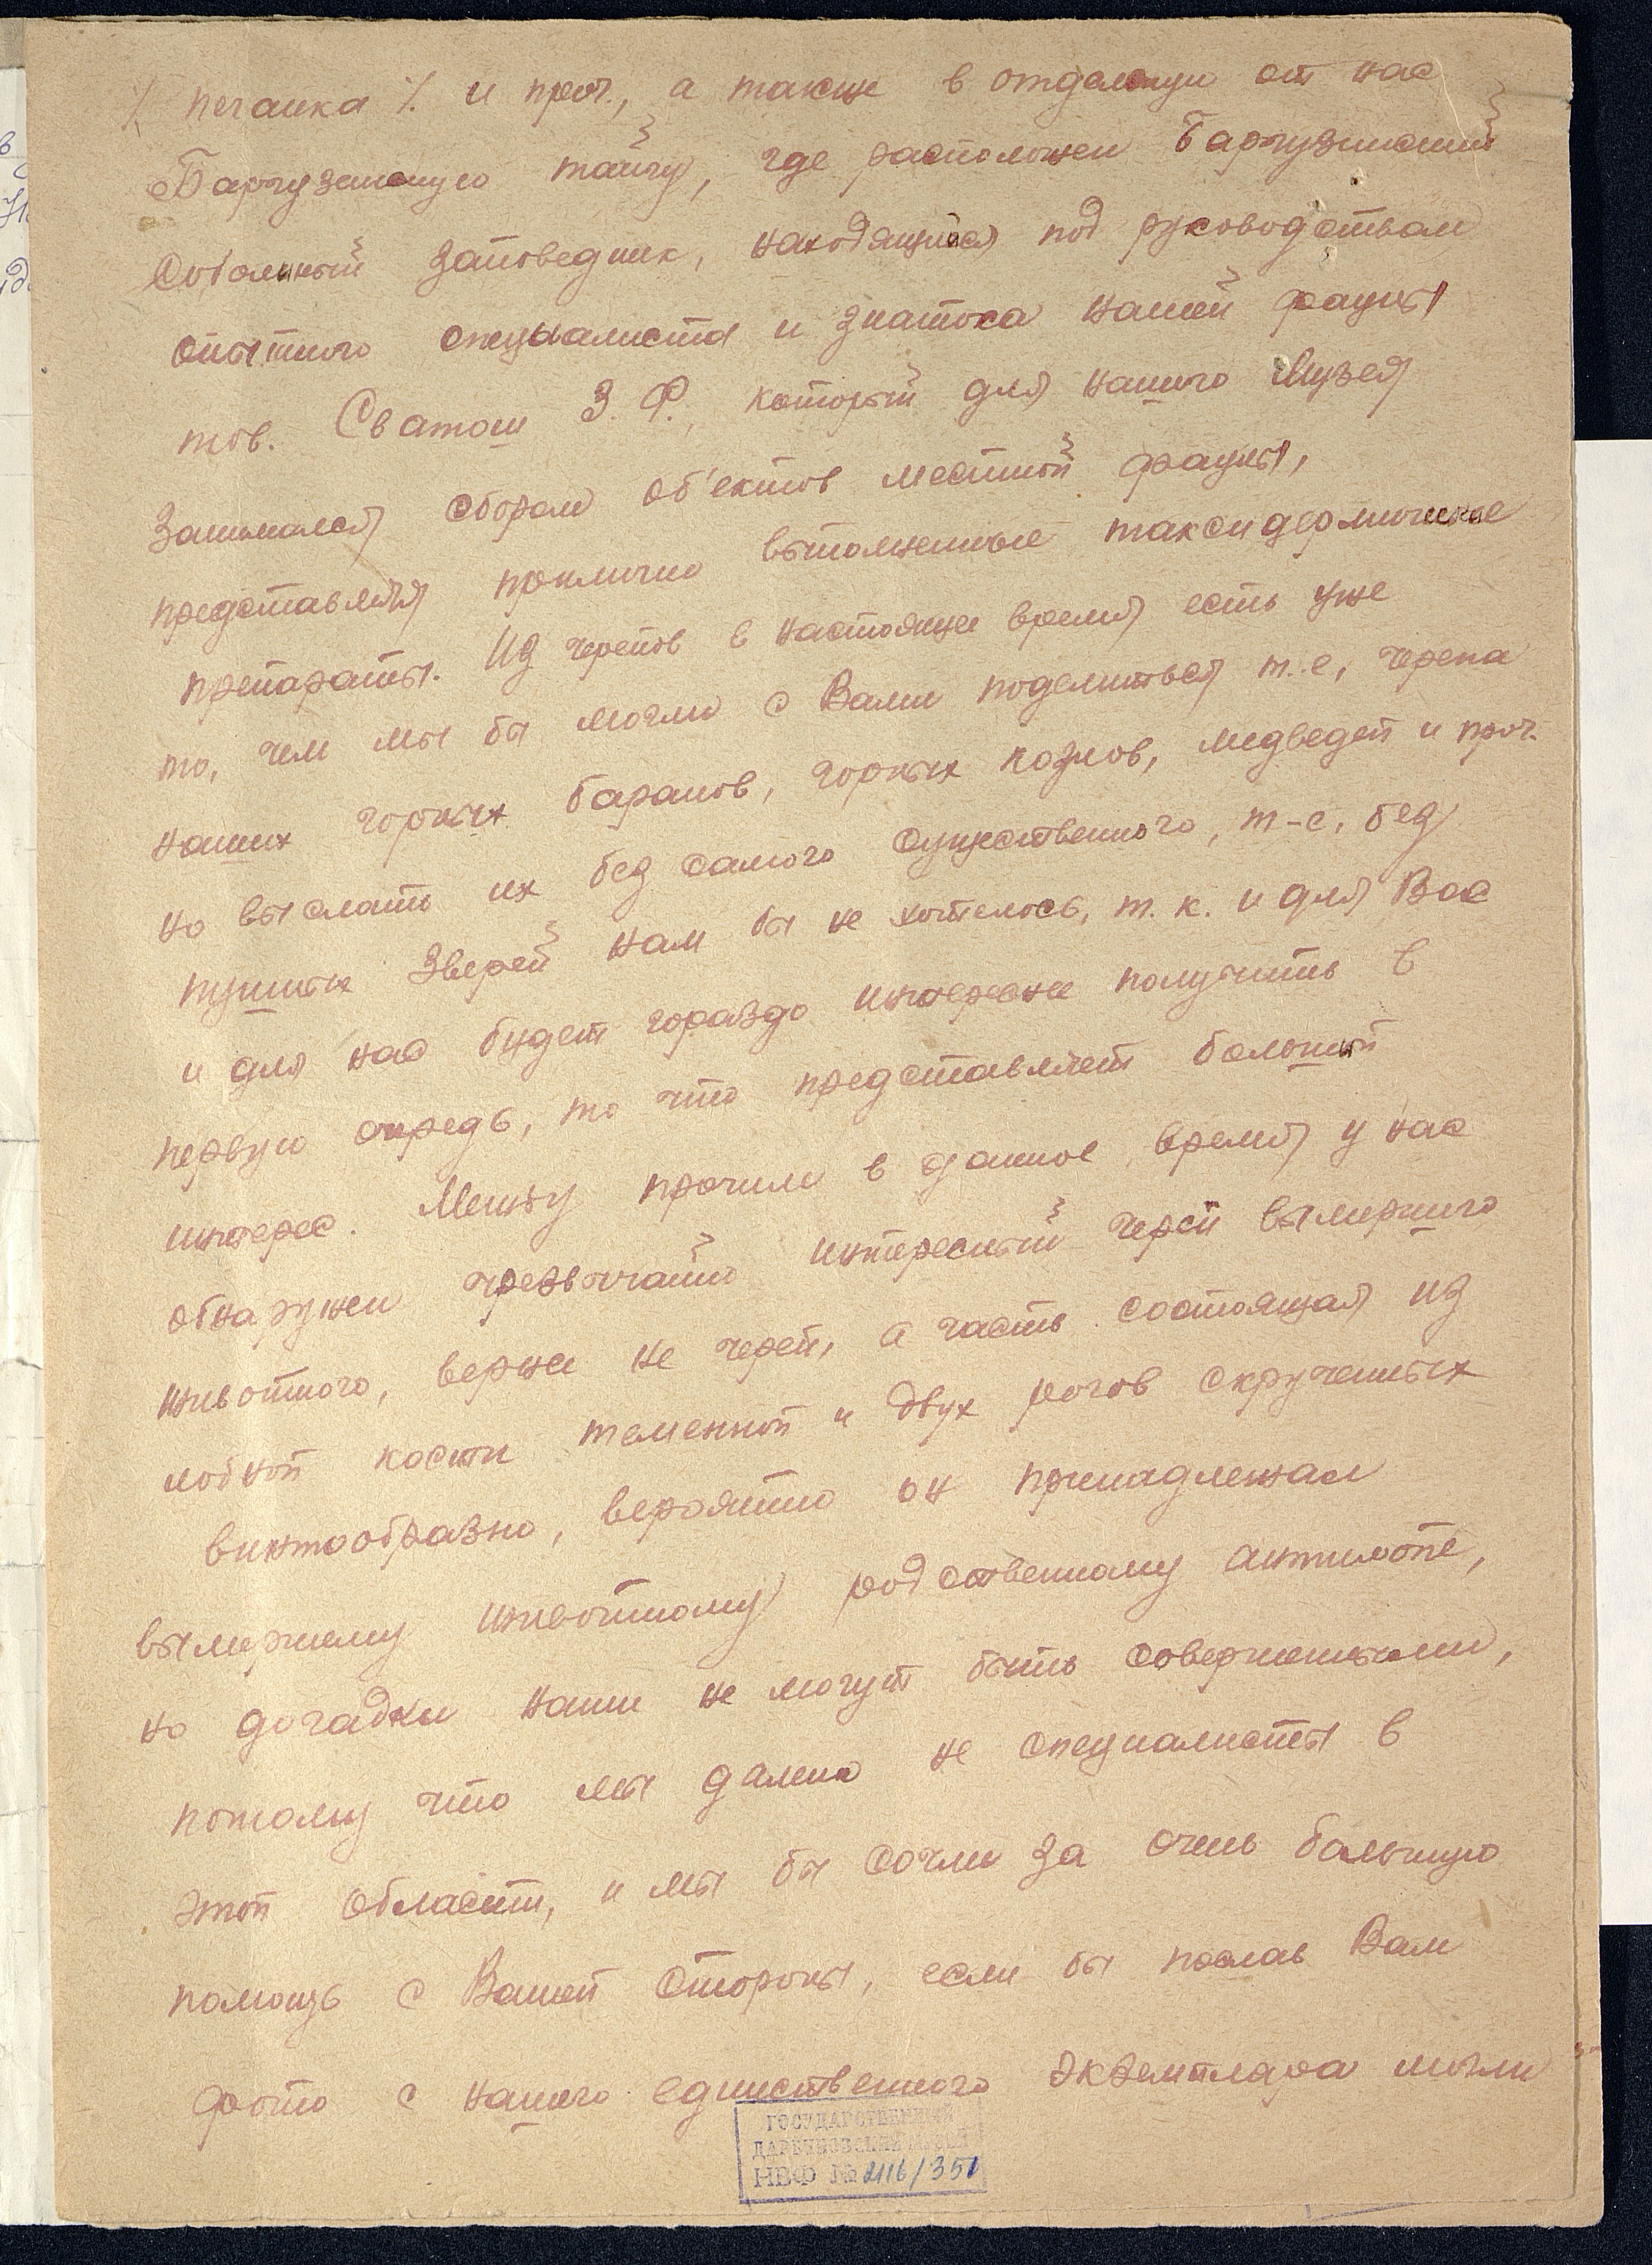 % песчанка %. и проч., а также в отдаленую от нас
Баргузинскую тайгу, где расположен Баргузинский
Соболиный заповедник, находящийся под руководством
опытного специалиста и знатока нашей фауны
тов. Сватош З. Ф., который для нашего Музея
занимался сбором об'ектов местной фауны,
представляя прилично выполненные таксидермические
препараты. Из черепов в настоящее время есть уже
то, чем мы бы могли с Вами поделиться т.-е. черепа
наших горных баранов, горных козлов, медведей и проч.
но выслать их без самого существенного, т-е. без
тушек зверей нам бы не хотелось, т. к. и для Вас
и для нас будет гораздо интереснее получить в
первую очередь, то что представляет больший
интерес. Между прочим в данное время у нас
обнаружен чрезвычайно интересный череп вымершего
животного, вернее не череп, а часть состоящая из
лобной кости теменной и двух рогов скрученных
винтообразно, вероятно он принадлежал
вымершему животному родственному антилопе,
но догадки наши не могут быть совершенными,
потому что мы далеко не специалисты в
этой области, и мы бы сочли за очень большую
помощь с Вашей стороны, если бы послав Вам
фото с нашего единственного экземпляра могли
ГОСУДАРСТВЕННЫЙ
ДАРВИНОВСКИЙ МУЗЕЙ
НВФ № 2116/351